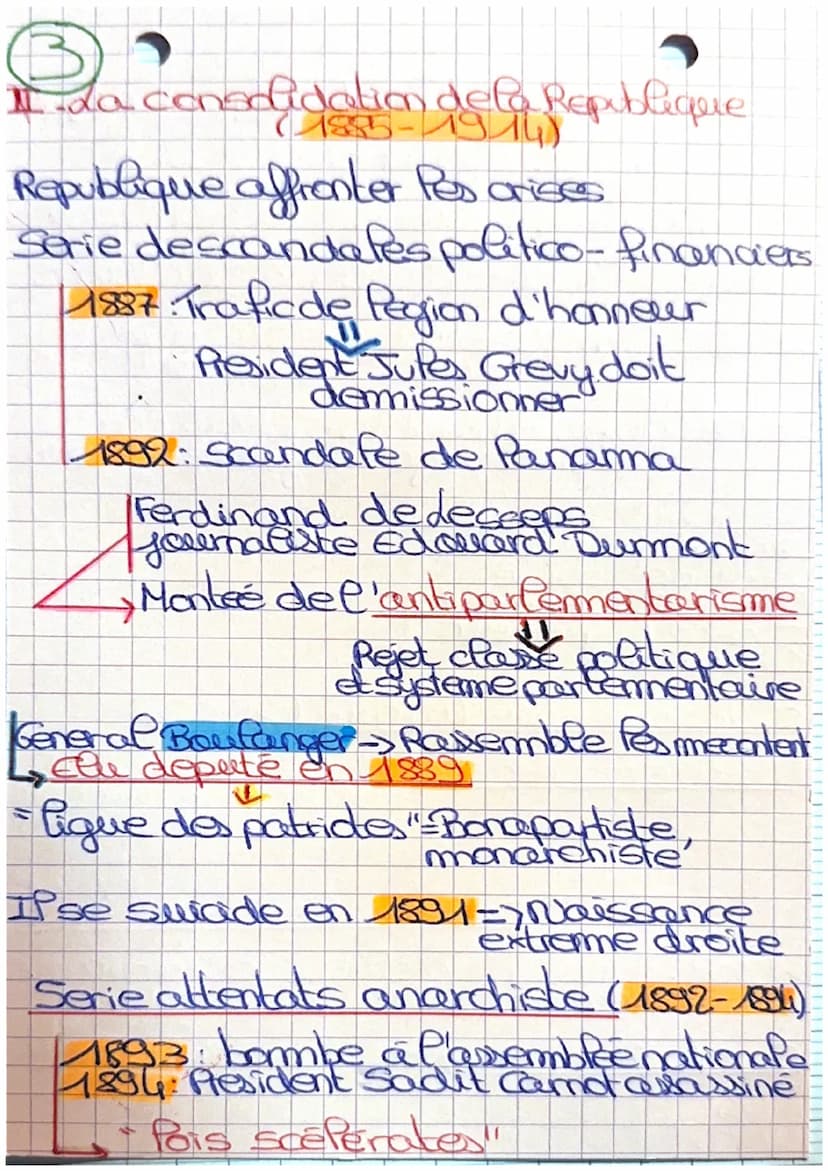 3
II - La consolidation de la Republique
(1885-1914)
Republique affronter les crises
Serie de scandales politico-financiers
1887: Trafic de legion d'honneur
⇓
President Jules Grevy doit
demissionner
1892: scandale de Panama
Ferdinand de Lesseps
journaliste Edouard Durmont
→ Monteé de l'antiparlementarisme
⇓
Rejet classe politique
et systeme parlementaire
General Boulanger → Rassemble les mecontent
↳ Elu deputé en 1889
↓
"ligue des patriotes" = Bonapartiste,
monarchiste
Il se suicide en 1891 => Naissance
extreme droite
Serie attentats anarchiste (1892-1894)
1893: bombe à l'assemblée nationale
1894: President Sadit Carnot assassiné
"lois scélérates"